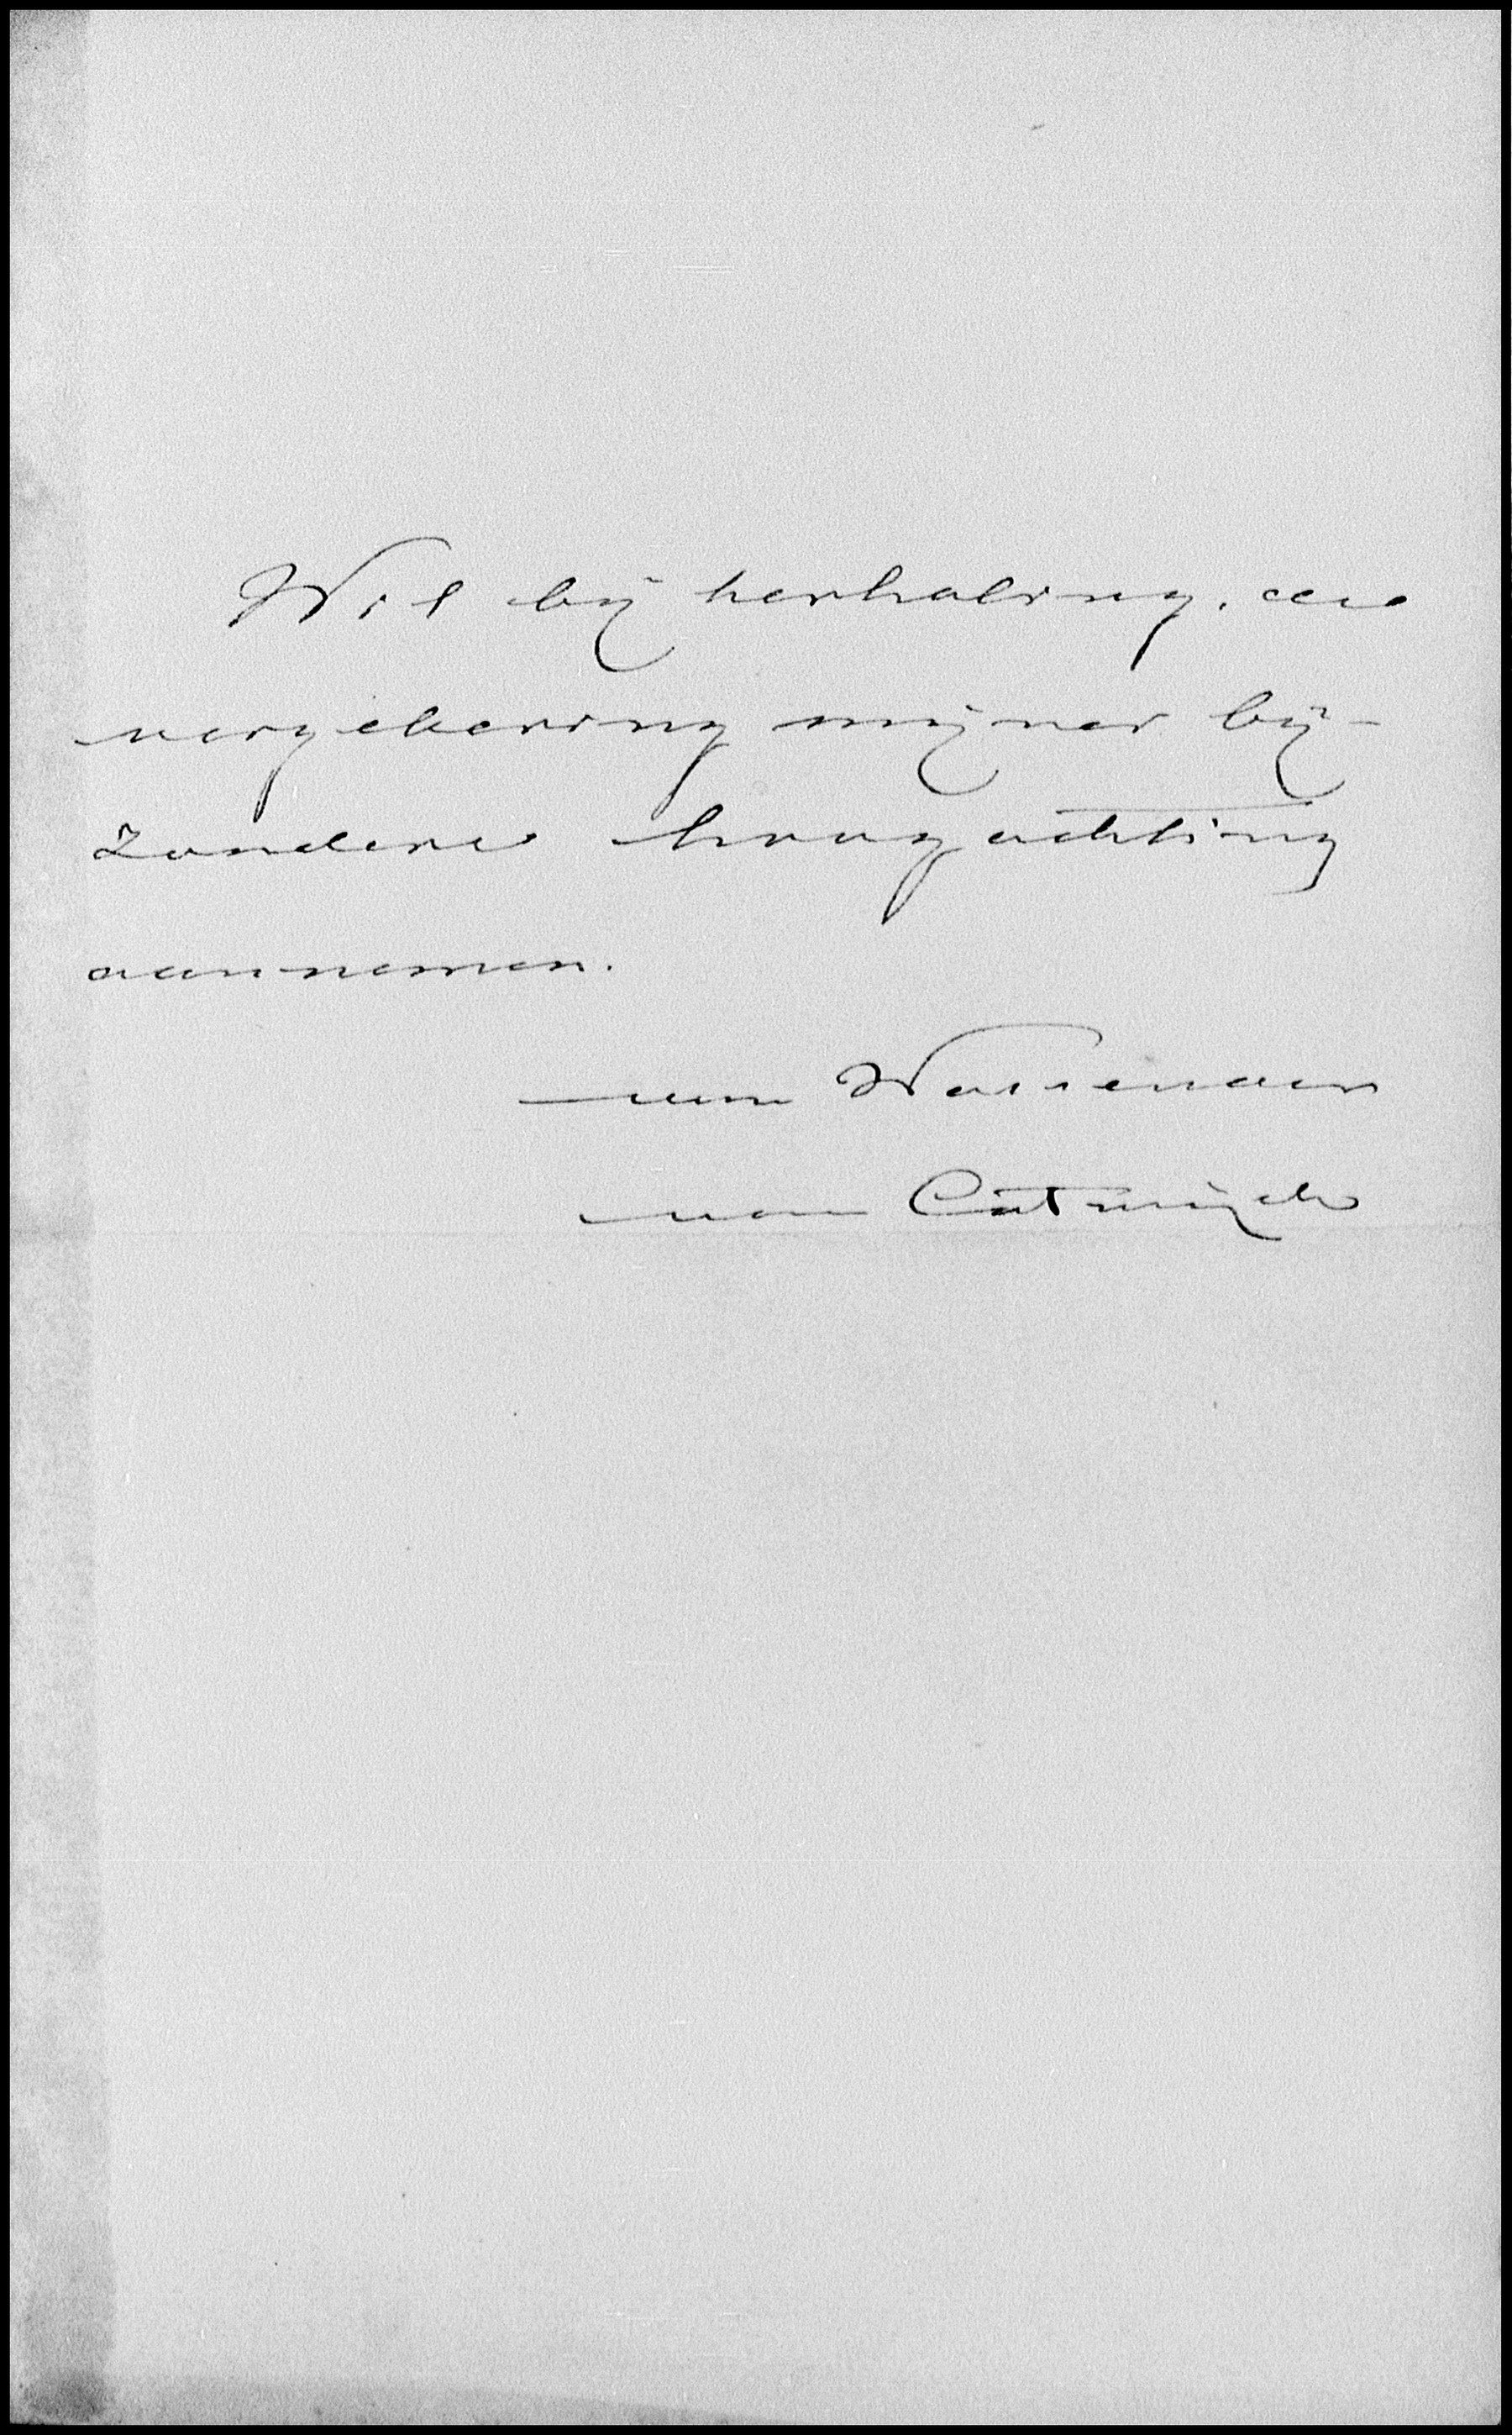 Wil bij herhaling, de
verzekering mijner bij-
zondere hoogachting
aannemen.
van Wassenaer
van Catwijck